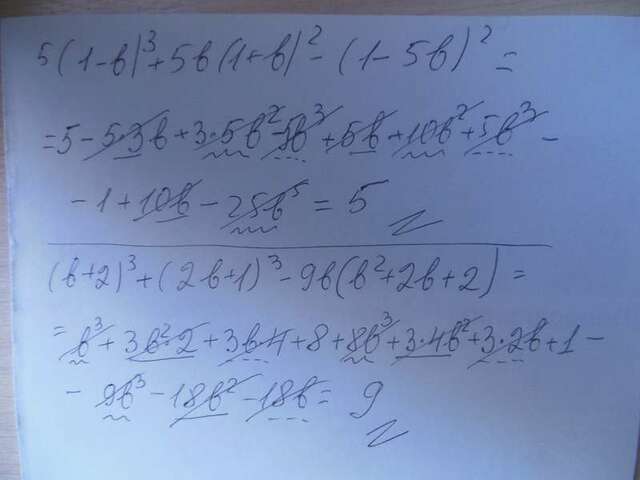 5(1-b)³+5b(1+b)²-(1-5b)²=
=5-5·3b+3·5b²-5b³+5b+10b²+5b³-
-1+10b-25b³=5
(b+2)³+(2b+1)³-9b(b²+2b+2)=
=b³+3b²·2+3b·4+8+8b³+3·4b²+3·2b+1-
-9b³-18b²-18b=9